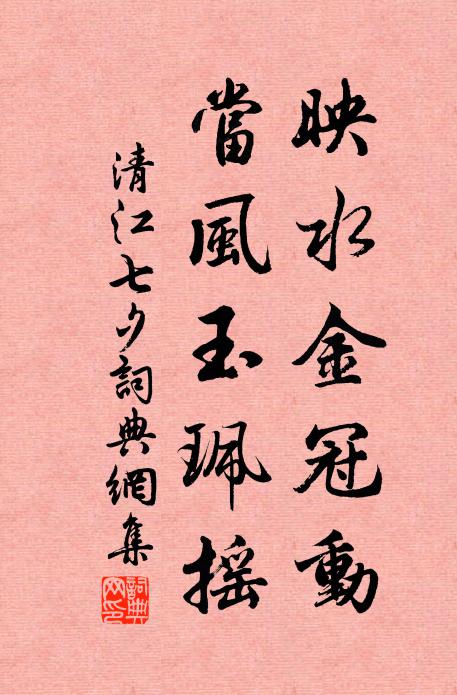 映水金冠動
當風玉珮搖
清江七夕詞典網集
詞典網印